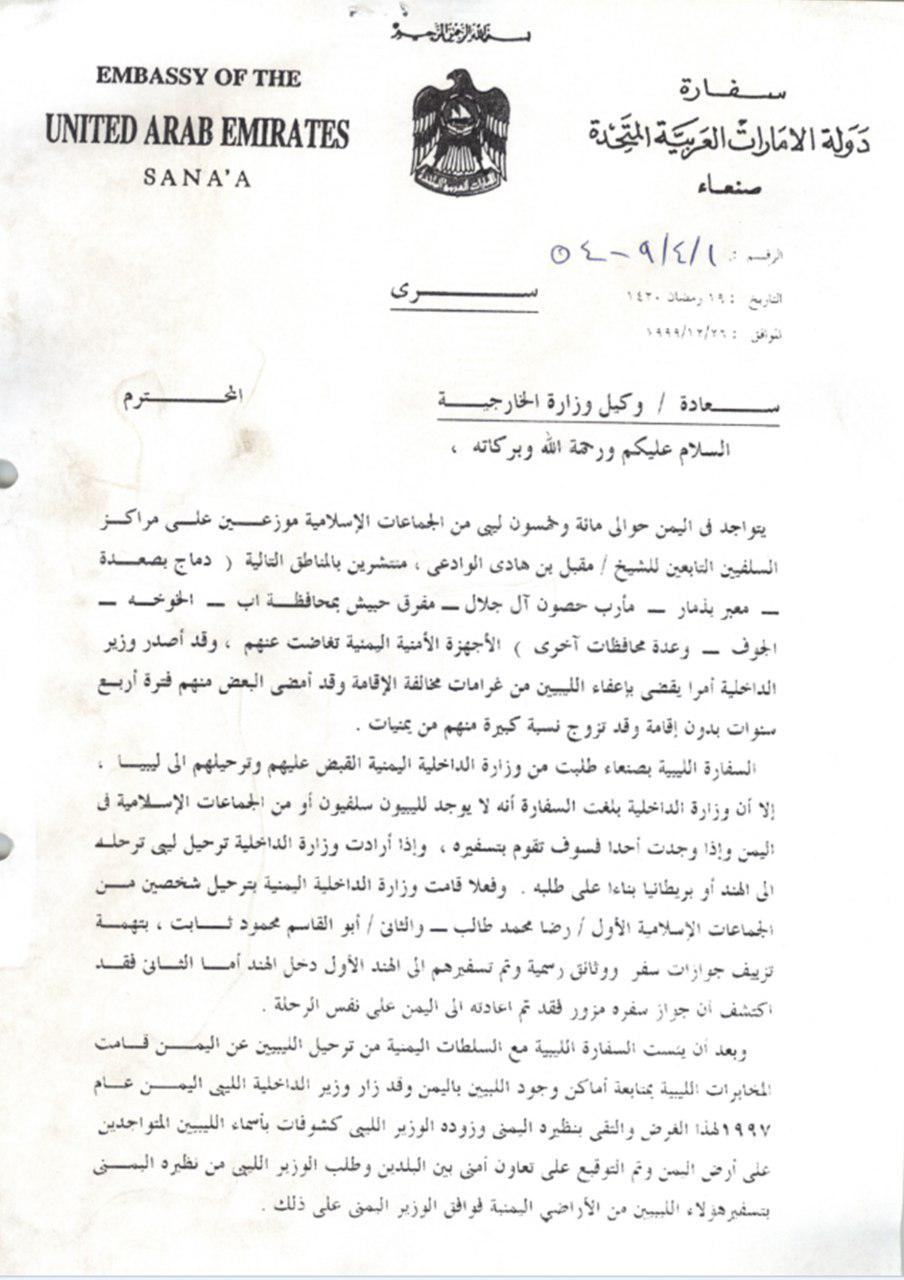 بسم الله الرحمن الرحيم
EMBASSY OF THE
UNITED ARAB EMIRATES
SANA'A
سفارة
دولة الامارات العربية المتحدة
صنعاء
الرقم : ٩/٤/١ – ٥٤
التاريخ : ١٩ رمضان ١٤٢٠
لموافق : ١٩٩٩/١٢/٢٦
سرى
سعادة / وكيل وزارة الخارجية المحترم
السلام عليكم ورحمة الله وبركاته ،
يتواجد فى اليمن حوالى مائة وخمسون ليبى من الجماعات الإسلامية موزعين على مراكز
السلفيين التابعين للشيخ / مقبل بن هادى الوادعى ، منتشرين بالمناطق التالية ( دماج بصعدة
– معبر بذمار – مأرب حصون آل جلال – مفرق حبيش بمحافظة اب – الخوخه –
الجوف – وعدة محافظات آخرى ) الأجهزة الأمنية اليمنية تغاضت عنهم ، وقد أصدر وزير
الداخلية أمرا يقضى بإعفاء الليبيين من غرامات مخالفة الإقامة وقد أمضى البعض منهم فترة أربع
سنوات بدون إقامة وقد تزوج نسبة كبيرة منهم من يمنيات .
السفارة الليبية بصنعاء طلبت من وزارة الداخلية اليمنية القبض عليهم وترحيلهم الى ليبيا ،
إلا أن وزارة الداخلية بلغت السفارة أنه لا يوجد لليبيون سلفيون أو من الجماعات الإسلامية فى
اليمن وإذا وجدت أحدا فسوف تقوم بتسفيره ، وإذا أرادت وزارة الداخلية ترحيل ليبى ترحله
الى الهند أو بريطانيا بناءا على طلبه . وفعلا قامت وزارة الداخلية اليمنية بترحيل شخصين من
الجماعات الإسلامية الأول / رضا محمد طالب – والثانى / أبو القاسم محمود ثابت ، بتهمة
تزييف جوازات سفر ووثائق رسمية وتم تسفيرهم الى الهند الأول دخل الهند أما الثانى فقد
اكتشف أن جواز سفره مزور فقد تم اعادته الى اليمن على نفس الرحلة .
وبعد أن يئست السفارة الليبية مع السلطات اليمنية من ترحيل الليبيين عن اليمن قامت
المخابرات الليبية بمتابعة أماكن وجود الليبين باليمن وقد زار وزير الداخلية الليبى اليمن عام
١٩٩٧ لهذا الغرض والتقى بنظيره اليمنى وزوده الوزير الليبى كشوفات بأسماء الليبيين المتواجدين
على أرض اليمن وتم التوقيع على تعاون أمنى بين البلدين وطلب الوزير الليبى من نظيره اليمنى
بتسفير هؤلاء الليبيين من الأراضي اليمنية فوافق الوزير اليمنى على ذلك .